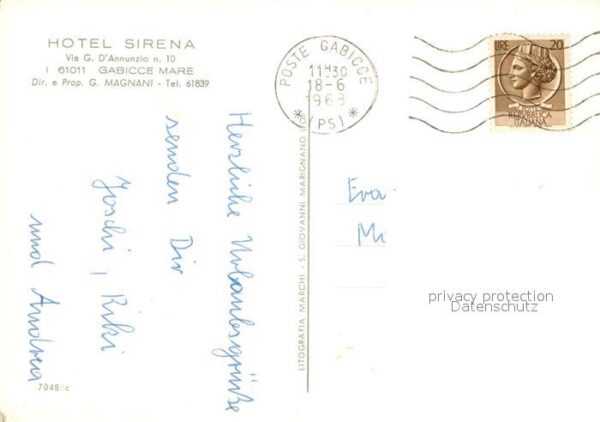 HOTEL SIRENA
Via G. D'Annunzio n. 10
I 61011 GABICCE MARE
Dir. e Prop. G. MAGNANI - Tel. 61839
POSTE GABICCE
11H30
18-6
1968
(PS)
LIRE 20
REPVBBLICA
ITALIANA
Herzliche Urlaubsgrüße
senden Dir
Joschi, Riki
und Andrea
LITOGRAFIA MARCHI - S. GIOVANNI MARIGNANO
Eva
Mi
privacy protection
Datenschutz
7048/c